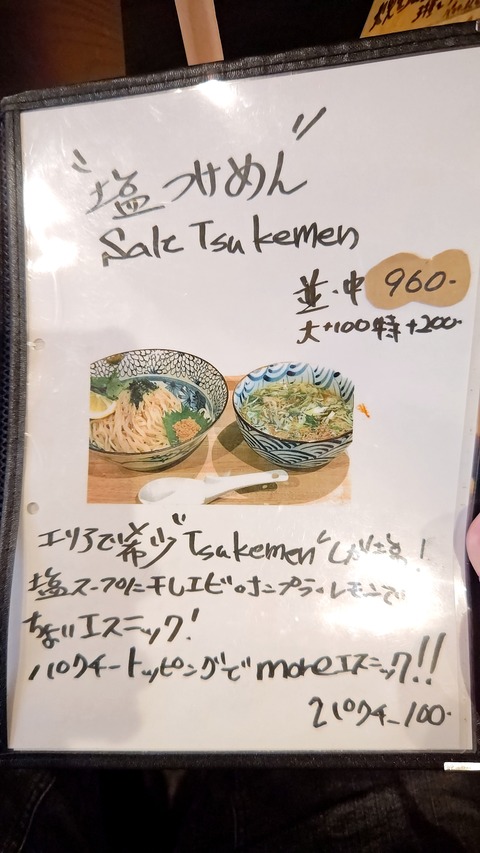 "塩つけめん"
Salt Tsukemen
並・中 960-
大+100 特+200-
エリアで希少"Tsukemen"しかも塩!
塩スープに干しエビ
レモンで
ちょいエスニック!
パクチートッピングでmoreエスニック!!
パクチー100-